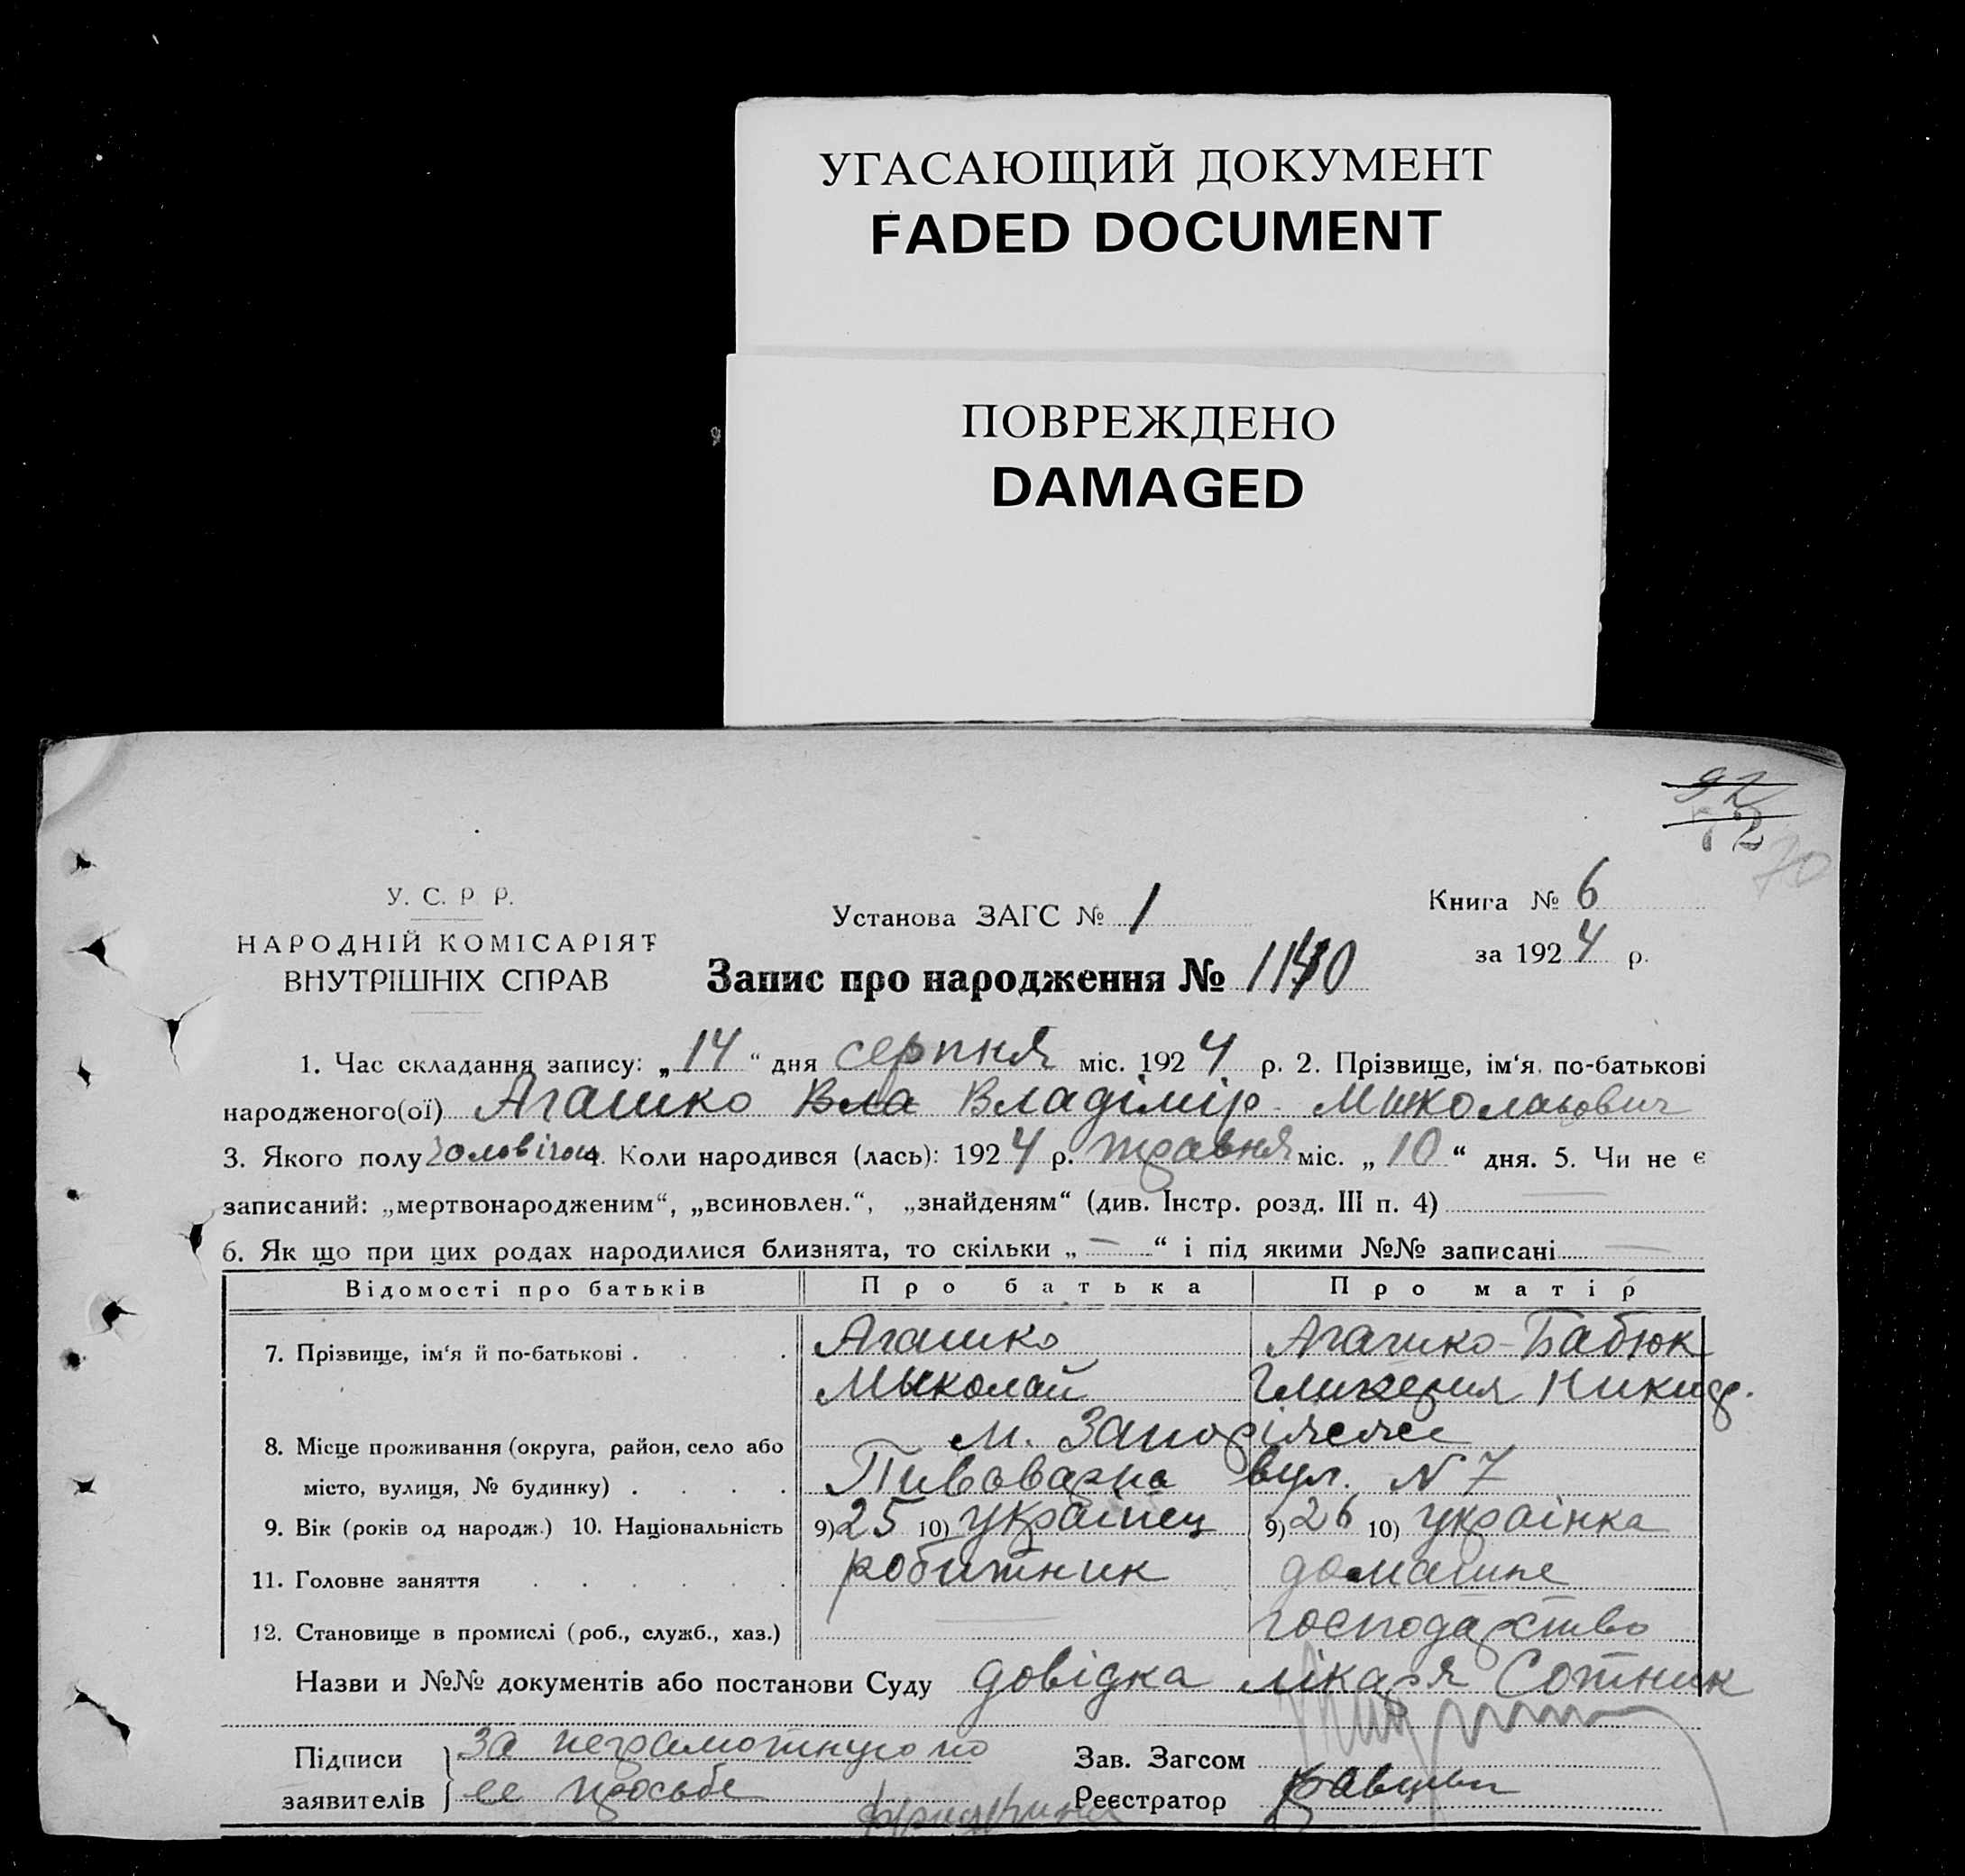 УГАСАЮЩИЙ ДОКУМЕНТ
FADED DOCUMENT
ПОВРЕЖДЕНО
DAMAGED
92
72
70
У. С. Р Р.
НАРОДНІЙ КОМІСАРІЯТ
ВНУТРІШНІХ СПРАВ
Установа ЗАГС № 1
Книга № 6
за 1924 р.
Запис про народження № 1140
1. Час складання запису: „14“ дня серпня міс. 1924 р. 2. Прізвище, ім‘я. по-батькові
народженого(ої) Агашко Вла Владімір Миколайович
3. Якого полу чоловічой 4. Коли народився (лась): 1924 р. травня міс. „10“ дня. 5. Чи не є
записаний: „мертвонародженим“, „всиновлен.“, „знайденям“ (див. Інстр. розд. III п. 4)
6. Як що при цих родах народилися близнята, то скільки „—“ і під якими №№ записані —
Відомості про батьків Про батька Про матір
7. Прізвище, ім‘я й по-батькові . . . . Агашко Агашко-Бабюк
Мыколай Гликерия Никиф.
8. Місце проживання (округа, район, село або м. Запоріжже
місто, вулиця, № будинку) . . . . Пивоварна вул. N 7
9. Вік (років од народж.) 10. Національність 9) 25 10) українец 9) 26 10) українка
11. Головне заняття . . . . . . робитник домашне
12. Становище в промислі (роб., служб., хаз.) господарство
Назви и №№ документів або постанови Суду довідка лікаря Сотник
Підписи за неграмотную по Зав. Загсом
заявителів ее просьбе Реєстратор